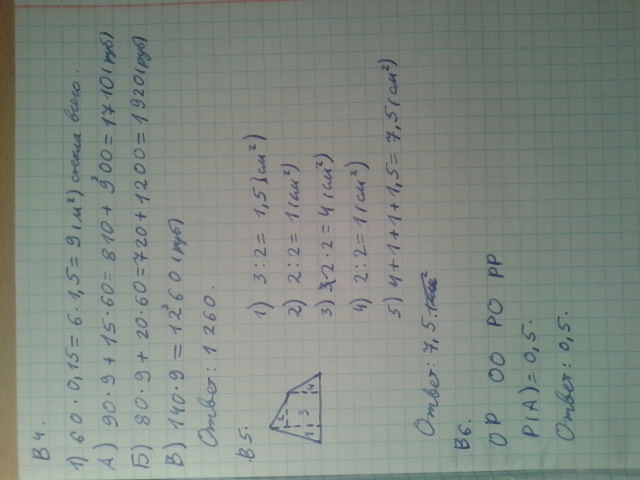 В4.
1) 60 · 0,15 = 6 · 1,5 = 9 (м²) стекла всего.
А) 90 · 9 + 15 · 60 = 810 + 900 = 1710 (руб)
Б) 80 · 9 + 20 · 60 = 720 + 1200 = 1920 (руб)
В) 140 · 9 = 1260 (руб)
Ответ: 1 260.
В5.
1) 3 : 2 = 1,5 (см²)
2) 2 : 2 = 1 (см²)
3) 2 · 2 = 4 (см²)
4) 2 : 2 = 1 (см²)
5) 4 + 1 + 1 + 1,5 = 7,5 (см²)
1 2 3 4
Ответ: 7,5.
В6.
ОР ОО РО РР
Р(А) = 0,5.
Ответ: 0,5.